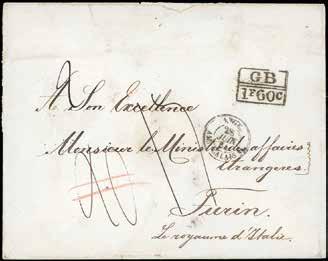 GB
1F60c
A Son Excellence
Monsieur le Ministre des affaires
étrangeres
Turin
Le royaume d'Italie.
ANGL.
28
CALAIS